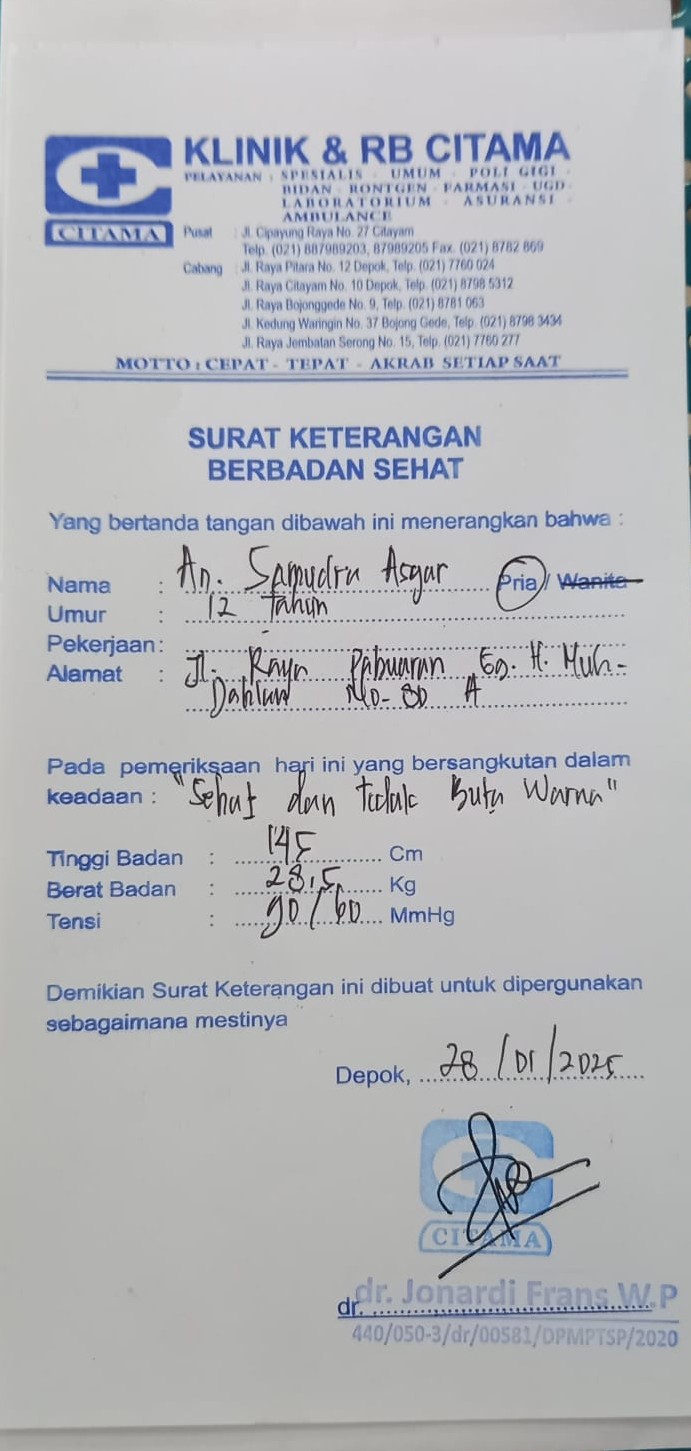 KLINIK & RB CITAMA
PELAYANAN : SPESIALIS - UMUM - POLI GIGI -
BIDAN - RONTGEN - FARMASI - UGD-
LABORATORIUM - ASURANSI -
AMBULANCE
CITAMA
Pusat : Jl. Cipayung Raya No. 27 Citayam
Telp. (021) 887989203, 87989205 Fax. (021) 8782 869
Cabang : Jl. Raya Pitara No. 12 Depok, Telp. (021) 7760 024
Jl. Raya Citayam No. 10 Depok, Telp. (021) 8798 5312
Jl. Raya Bojonggede No. 9, Telp. (021) 8781 063
Jl. Kedung Waringin No. 37 Bojong Gede, Telp. (021) 8798 3434
Jl. Raya Jembatan Serong No. 15, Telp. (021) 7760 277
MOTTO : CEPAT - TEPAT - AKRAB SETIAP SAAT
SURAT KETERANGAN
BERBADAN SEHAT
Yang bertanda tangan dibawah ini menerangkan bahwa :
Nama : An. Samudra Asgar Pria / Wanita
Umur : 12 Tahun
Pekerjaan : -
Alamat : Jl. Raya Pabuaran Gg. H. Muh-
Dahlan No-80 A
Pada pemeriksaan hari ini yang bersangkutan dalam
keadaan : "Sehat dan tidak Buta Warna"
Tinggi Badan : 145 Cm
Berat Badan : 28,5 Kg
Tensi : 90/60 MmHg
Demikian Surat Keterangan ini dibuat untuk dipergunakan
sebagaimana mestinya
Depok, 28/01/2025
CITAMA
dr. dr. Jonardi Frans W.P
440/050-3/dr/00581/DPMPTSP/2020